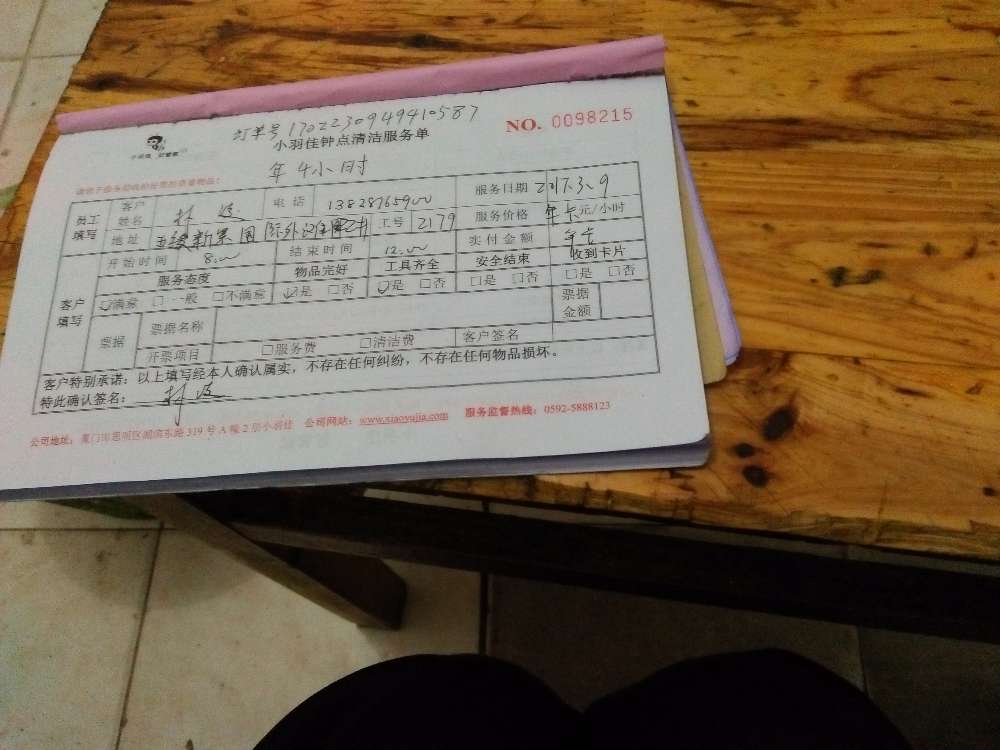 订单号 1702230949410587
小羽佳钟点清洁服务单
NO. 0098215
年 4小时
员工填写 客户姓名 林 电话 服务日期 2017.3.9
地址 新景国际外 工号 2179 服务价格 年卡 元/小时
开始时间 8:00 结束时间 12:00 实付金额 年卡
客户填写 服务态度 物品完好 工具齐全 安全结束 收到卡片
☑满意 □一般 □不满意 ☑是 □否 ☑是 □否 □是 □否 □是 □否
票据 票据名称 票据金额
开票项目 □服务费 □清洁费 客户签名
客户特别承诺：以上填写经本人确认属实，不存在任何纠纷，不存在任何物品损坏。
特此确认签名： 林
公司地址：厦门市思明区湖滨东路319号A幢2层小羽佳 公司网站：www.xiaoyujia.com 服务监督热线：0592-5888123